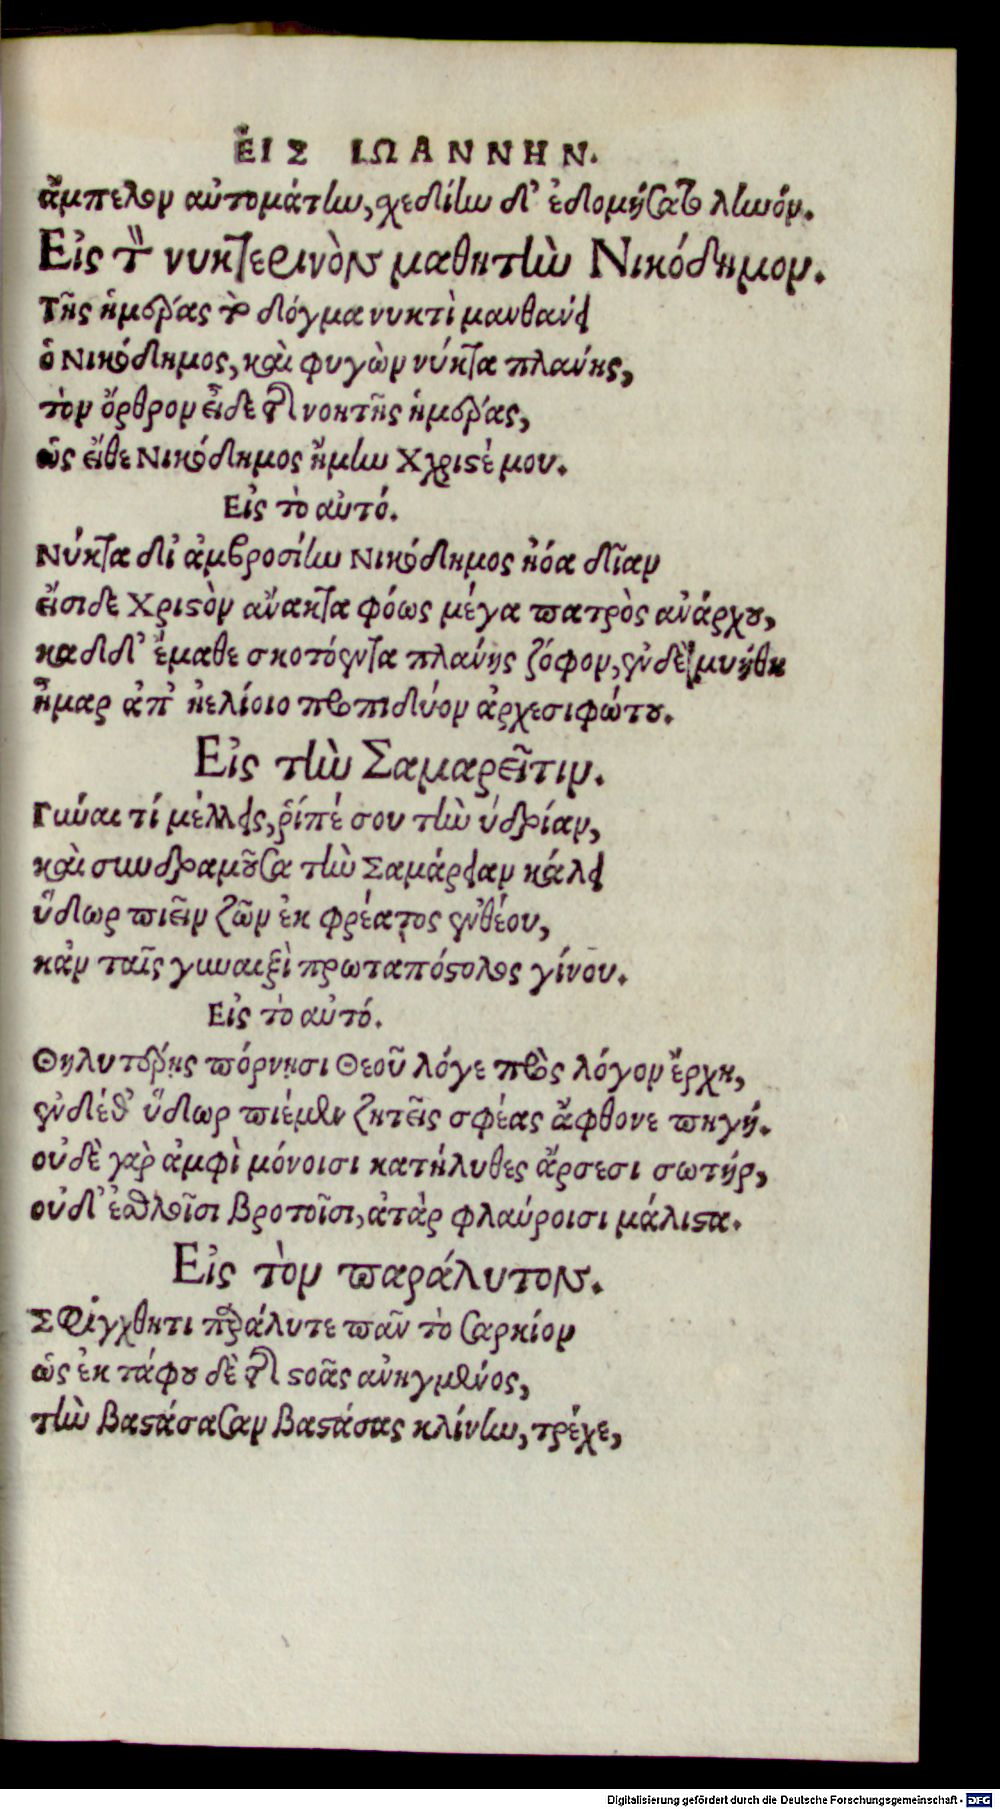 ΕἸΣ ἸΩΑΝΝΗΝ.
ἄμπελον αὐτομάτην, χεδίην δ' ἐδομήσατο ληνόν.
Εἰς τὸν νυκτερινὸν μαθητὴν Νικόδημον.
Τῆς ἡμέρας τὸ δόγμα νυκτὶ μανθάνει
ὁ Νικόδημος, καὶ φυγὼν νύκτα πλάνης,
τὸν ὄρθρον εἶδε τῆς νοητῆς ἡμέρας,
ὡς εἴθε Νικόδημος ἤμην Χριστέ μου.
Εἰς τὸ αὐτό.
Νύκτα δι' ἀμβροσίην Νικόδημος ἠόα δῖαν
εἴσιδε Χριστὸν ἄνακτα φόως μέγα πατρὸς ἀνάρχου,
καδδ' ἔμαθε σκοτόεντα πλάνης ζόφον, ἐν δὲ μυήθη
ἦμαρ ἀπ' ἠελίοιο προπιδύον ἀρχεσιφώτου.
Εἰς τὴν Σαμαρεῖτιν.
Γύναι τί μέλλεις, ῥίπτέ σου τὴν ὑδρίαν,
καὶ συνδραμοῦσα τὴν Σαμάρειαν κάλει
ὕδωρ πιεῖν ζῶν ἐκ φρέατος ἐνθέου,
κἀν ταῖς γυναιξὶ πρωταπόστολος γίνου.
Εἰς τὸ αὐτό.
Θηλυτέρῃς πόρνῃσι Θεοῦ λόγε πρὸς λόγον ἔρχῃ,
ἐνδέθ' ὕδωρ πιέμεν ζητεῖς σφέας ἄφθονε πηγή.
οὐδὲ γὰρ ἀμφὶ μόνοισι κατήλυθες ἄρσεσι σωτήρ,
οὐδ' ἐσθλοῖσι βροτοῖσι, ἀτὰρ φλαύροισι μάλιστα.
Εἰς τὸν παράλυτον.
Σφίγχθητι παράλυτε πᾶν τὸ σαρκίον
ὡς ἐκ τάφου δὲ τῆς στοᾶς ἀνηγμένος,
τὴν βαστάσασαν βαστάσας κλίνην, τρέχε,
Digitalisierung gefördert durch die Deutsche Forschungsgemeinschaft - DFG